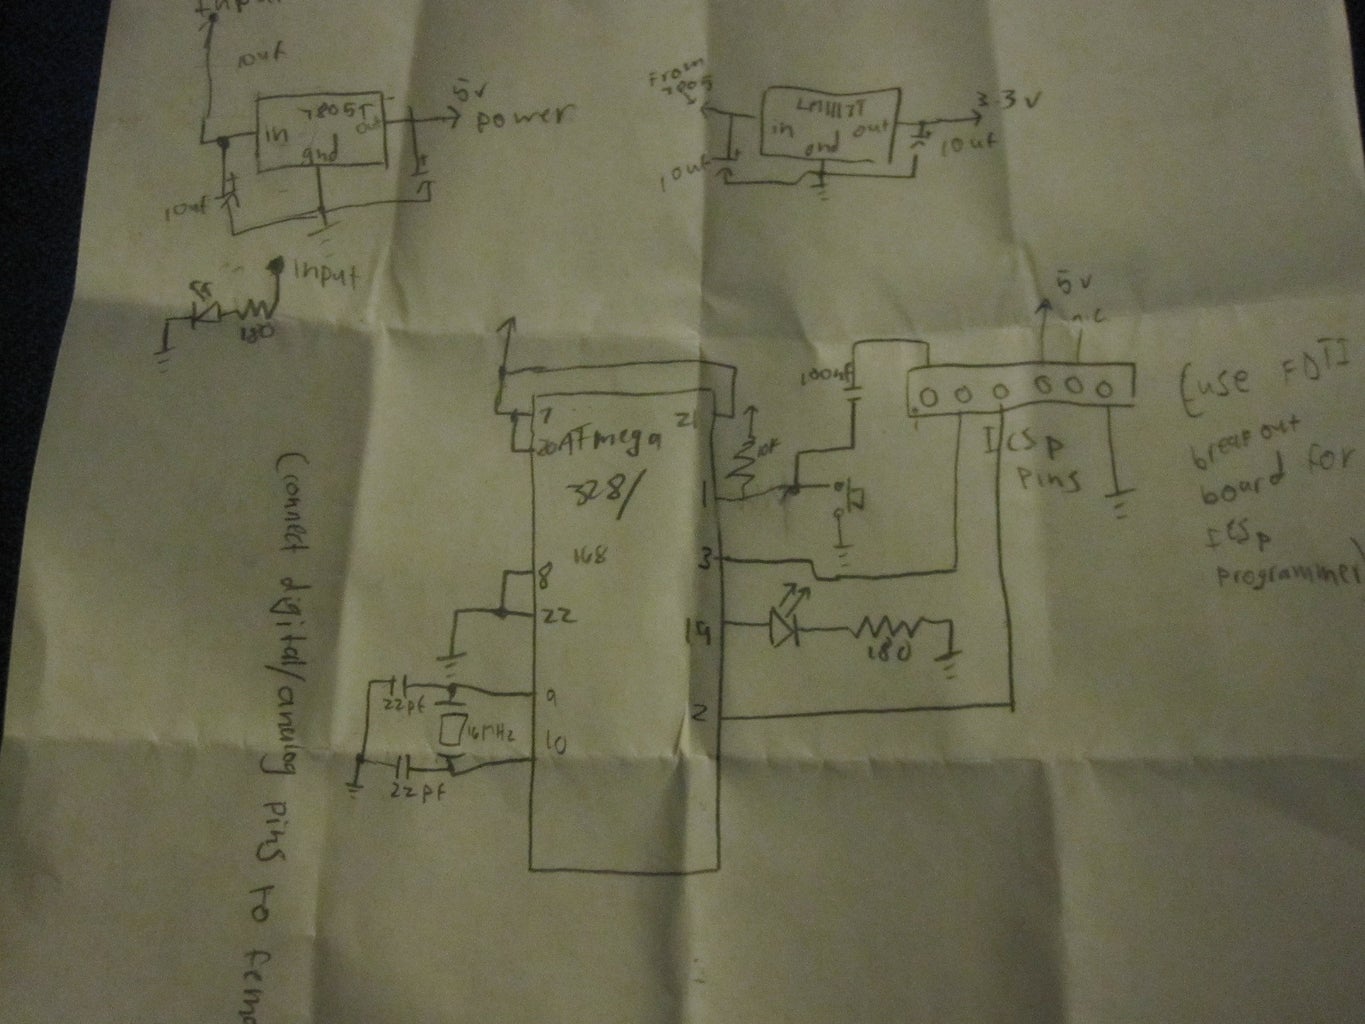 10uf
7805T
in
out
gnd
5v
power
10uf
From
7805
LM1117T
in
out
gnd
3.3v
10uf
10uf
Input
180
5v
n.c
100nf
7
20
ATmega
328/
168
21
10k
1
ICSP
pins
(use FDTI
break out
board for
ICSP
programmer)
8
22
3
19
180
2
9
22pf
16MHz
10
22pf
Connect digital/analog pins to fema